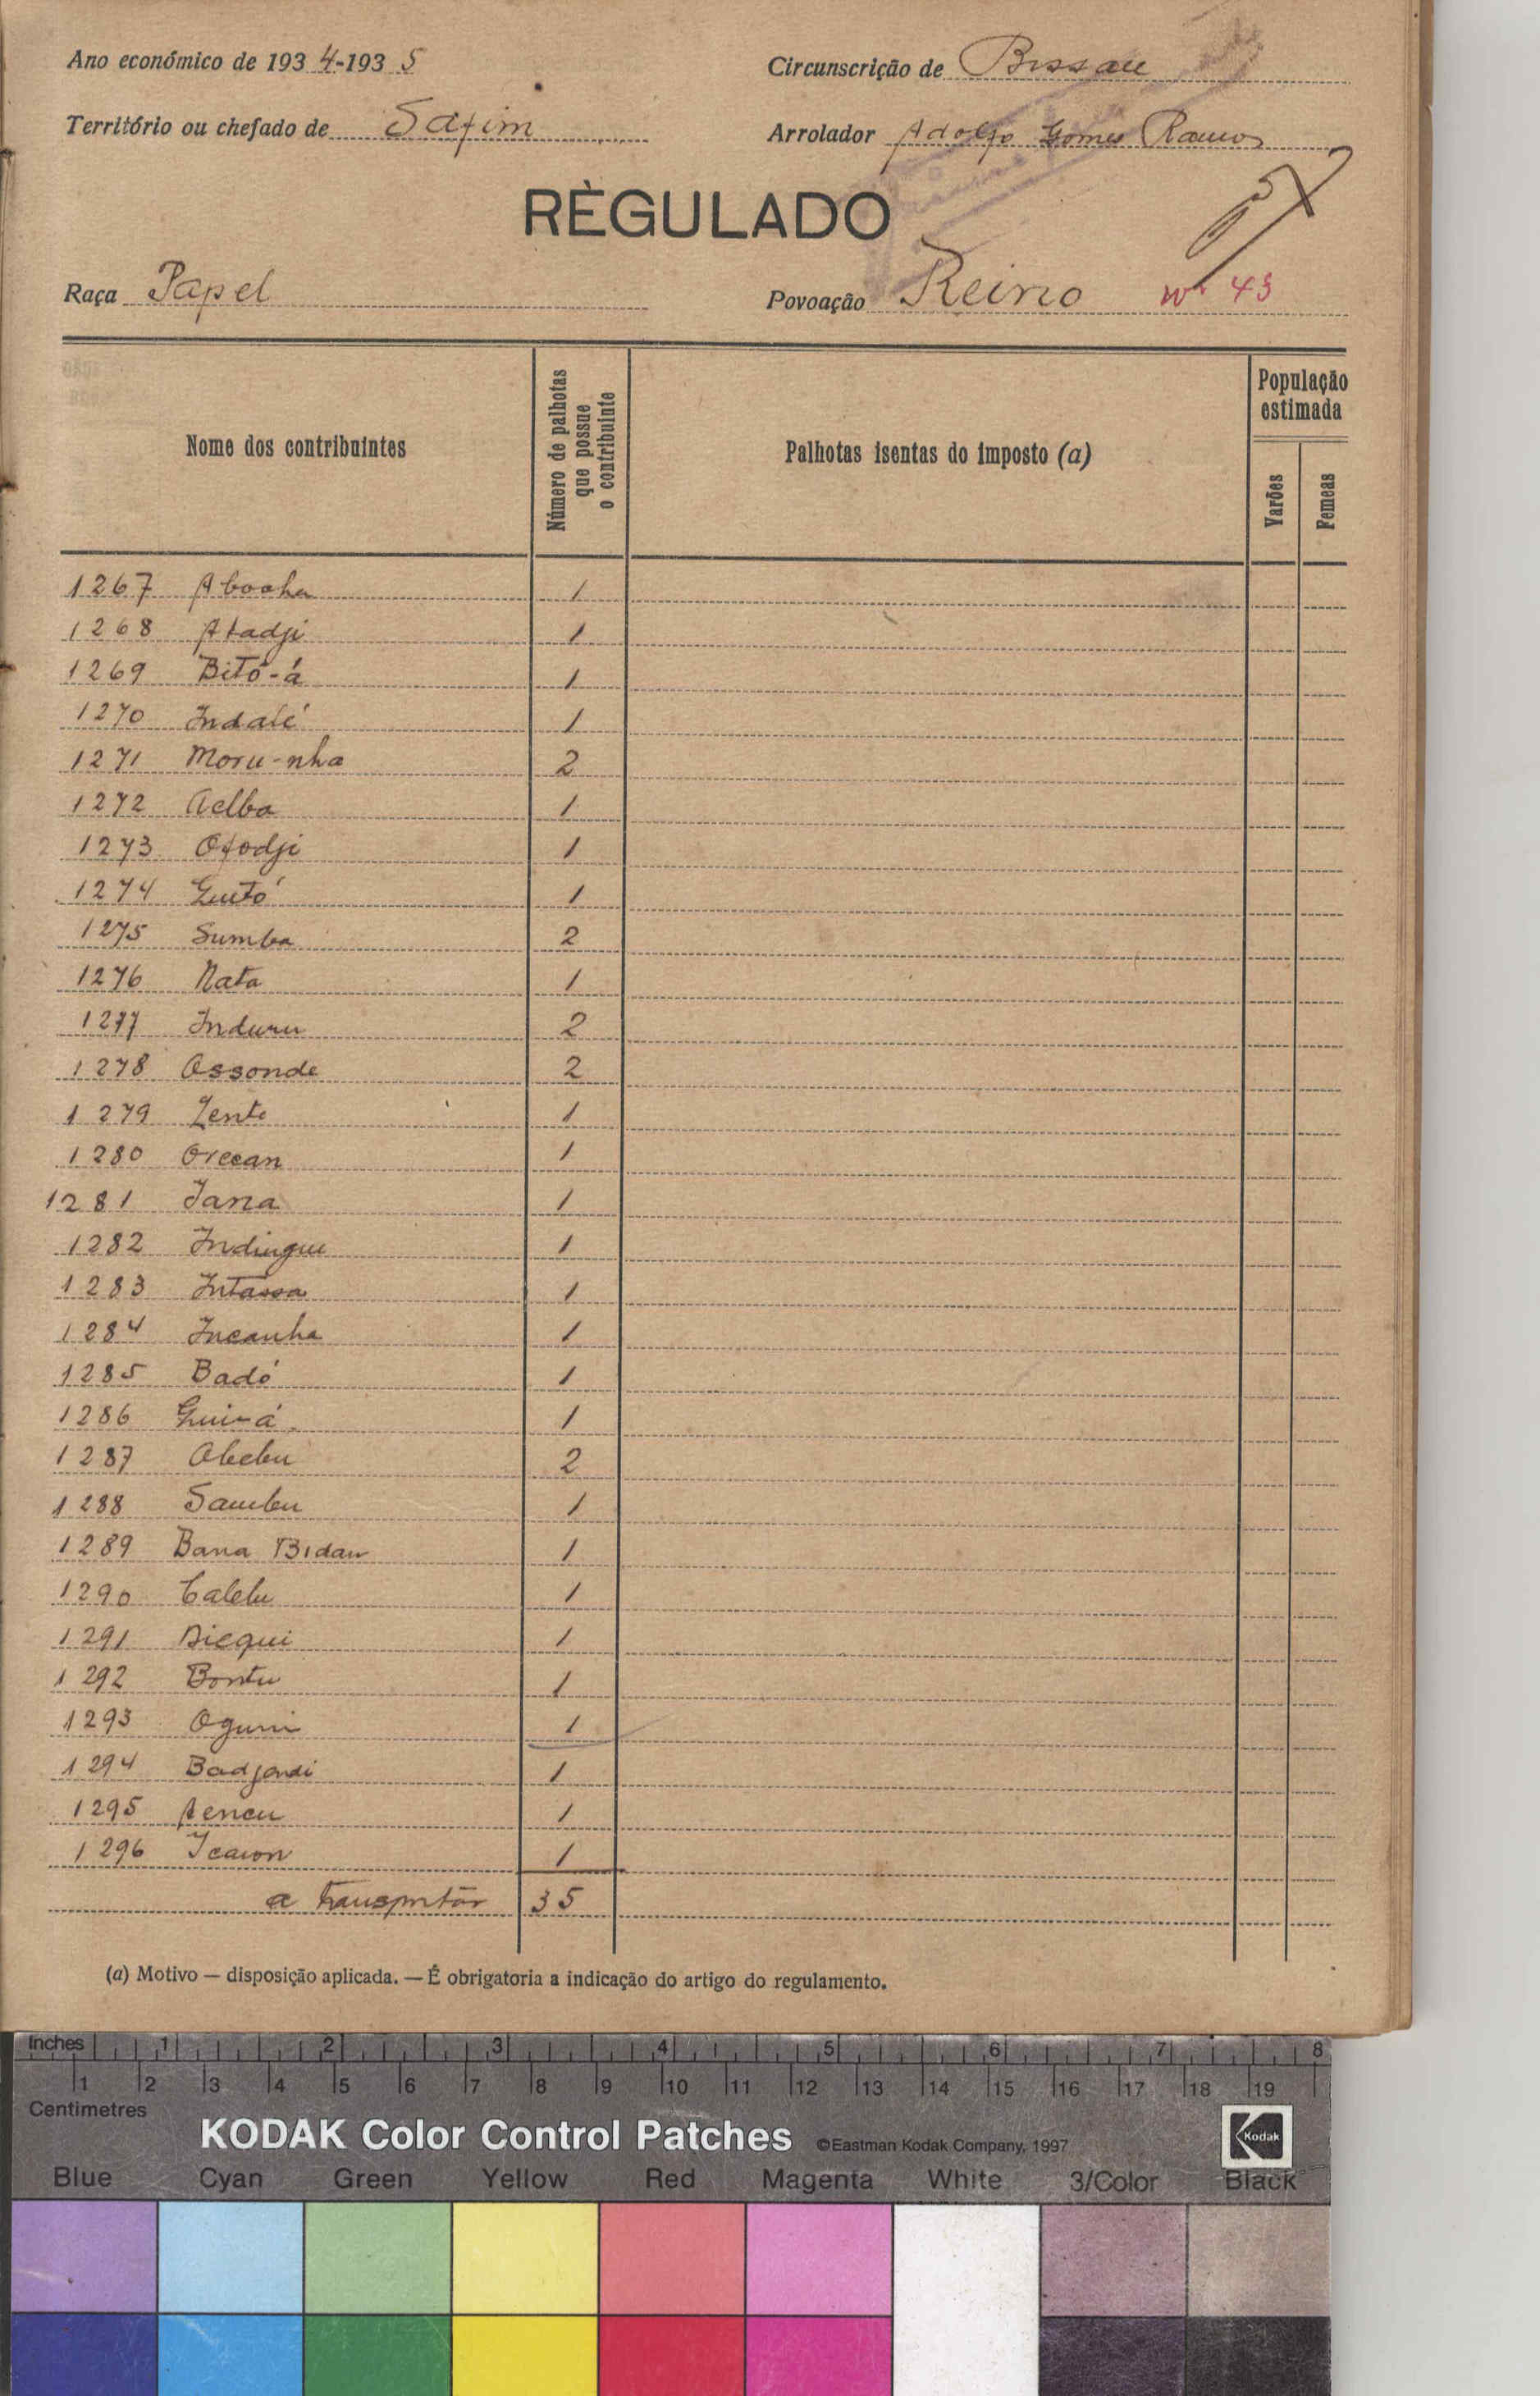 Ano económico de 1934-1935
Circunscrição de Bissau
Território ou chefado de Safim
Arrolador Adolfo Gomes Ramos
RÈGULADO
Raça Papel
Povoação Reino nº 43
Nome dos contribuintes
Número de palhotas que possue o contribuinte
Palhotas isentas do imposto (a)
População estimada
Varões
Femeas
1267 Abooha 1
1268 Atadji 1
1269 Bitó-á 1
1270 Indalé 1
1271 Moru-nha 2
1272 Aelba 1
1273 Ofodji 1
1274 Guitó 1
1275 Sumba 2
1276 Nata 1
1277 Induru 2
1278 Ossonde 2
1279 Zente 1
1280 Orecan 1
1281 Jana 1
1282 Indingue 1
1283 Intassa 1
1284 Incanha 1
1285 Badó 1
1286 Guiná 1
1287 Obebu 2
1288 Sambu 1
1289 Bana Bidan 1
1290 Calelu 1
1291 Biequi 1
1292 Bontu 1
1293 Oguni 1
1294 Badjondi 1
1295 Aencu 1
1296 Icaion 1
a transportar 35
(a) Motivo — disposição aplicada. — É obrigatoria a indicação do artigo do regulamento.
Inches 1 2 3 4 5 6 7 8
1 2 3 4 5 6 7 8 9 10 11 12 13 14 15 16 17 18 19
Centimetres
KODAK Color Control Patches ©Eastman Kodak Company, 1997 Kodak
Blue Cyan Green Yellow Red Magenta White 3/Color Black